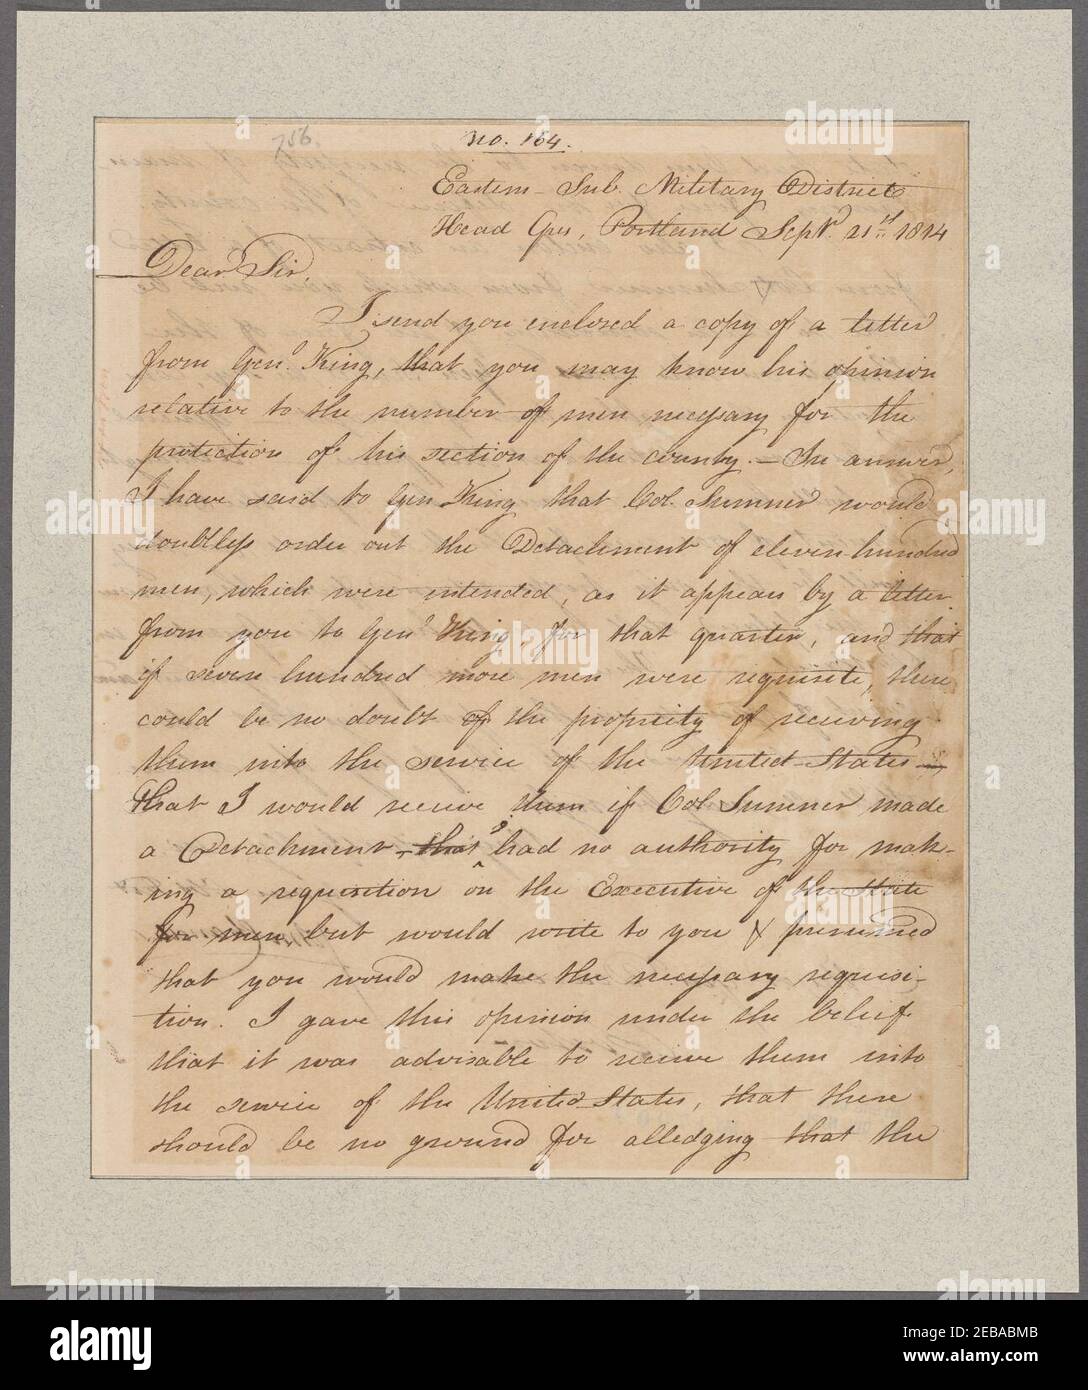 756.
No. 164.
Eastern Sub. Military District
Head Qrs, Portland Sept. 21st 1814
Dear Sir,
I send you enclosed a copy of a letter
from Genl. King, that you may know his opinion
relative to the number of men necessary for the
protection of his section of the county. — In answer,
I have said to Gen King that Col. Sumner would
doubtless order out the Detachment of eleven hundred
men, which were intended, as it appears by a letter
from you to Genl King, for that quarter, and that
if seven hundred more men were requisite, there
could be no doubt of the propriety of receiving
them into the service of the United States —
that I would receive them if Col Sumner made
a Detachment, that had no authority for mak-
ing a requisition on the Executive of the State
for men but would write to you & presumed
that you would make the necessary requisi-
tion. I gave this opinion under the belief
that it was advisable to receive them into
the service of the United States, that there
should be no ground for alledging that the
alamy
Image ID: 2EBABMB
www.alamy.com